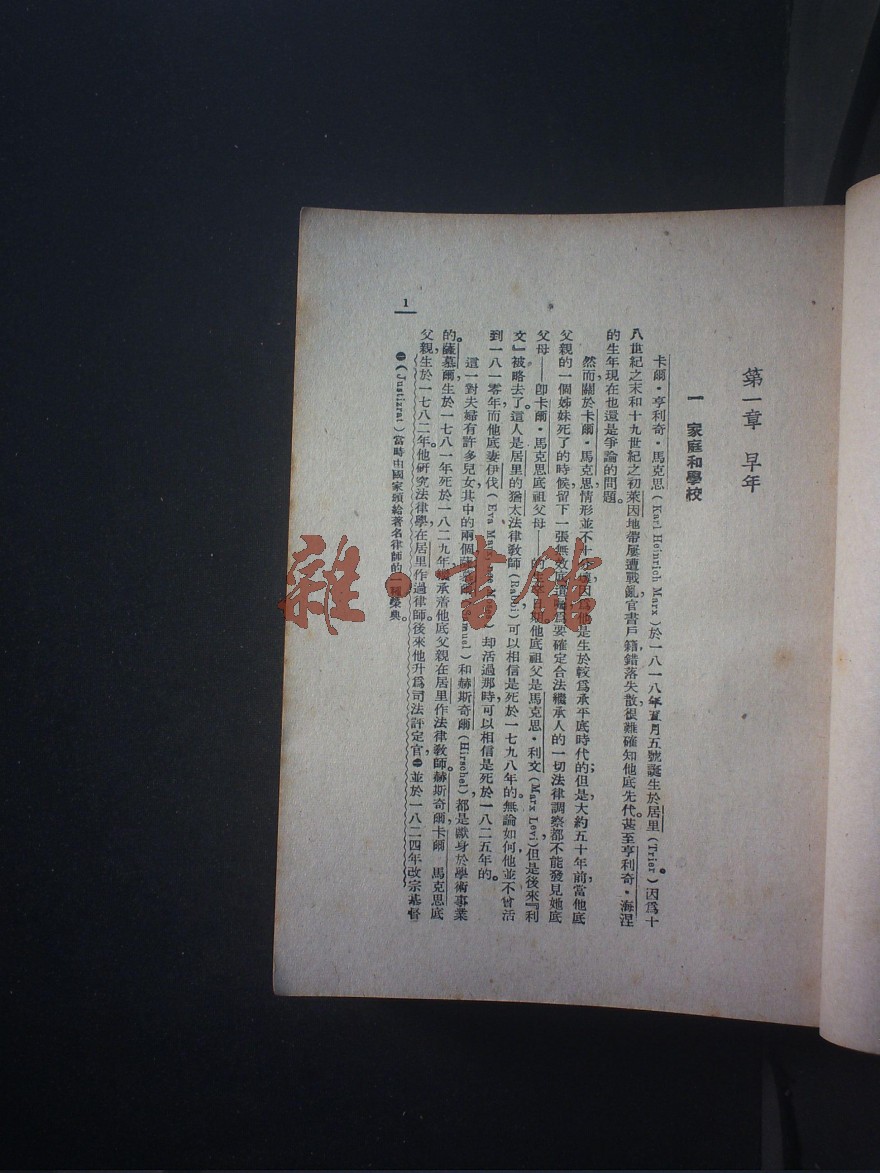 第一章　早年
一　家庭和學校
卡爾·亨利奇·馬克思(Karl Heinrich Marx)於一八一八年五月五號誕生於居里(Trier)。因爲十
八世紀之末和十九世紀之初萊因地帶屢遭戰亂,官書戶籍,錯落失散,很難確知他底先代。甚至亨利奇·海涅
的生年現在也還是爭論的問題。
然而,關於卡爾·馬克思,情形並不十,因爲他是生於較爲承平底時代的;但是,大約五十年前,當他底
父親的一個姊妹死了的時候,留下一張無效底遺囑,爲要確定合法繼承人的一切法律調察都不能發見她底
父母——卽卡爾·馬克思底祖父母——的生卒日期。他底祖父是馬克思·利文(Marx Levi),但是後來『利
文』被略去了。這人是居里的猶太法律教師(Rabbi)可以相信是死於一七九八年的。無論如何,他並不曾活
到一八一零年,而他底妻伊伐(Eva)却活過那時,可以相信是死於一八二五年的。
這一對夫婦有許多兒女,其中的兩個,(Samuel)和赫斯奇爾(Hirschel),都是獻身於學術事業
的。薩慕爾生於一七八一年,死於一八二九年,繼承着他底父親在居里作法律教師。赫斯奇爾卡爾　馬克思底
父親,生於一七八二年。他研究法律學,在居里作過律師。後來他升爲司法評定官,㊀並於一八二四年改宗基督
㊀(Justizrat)當時由國家頒給著名律師的一種榮典。
1
雜·書館